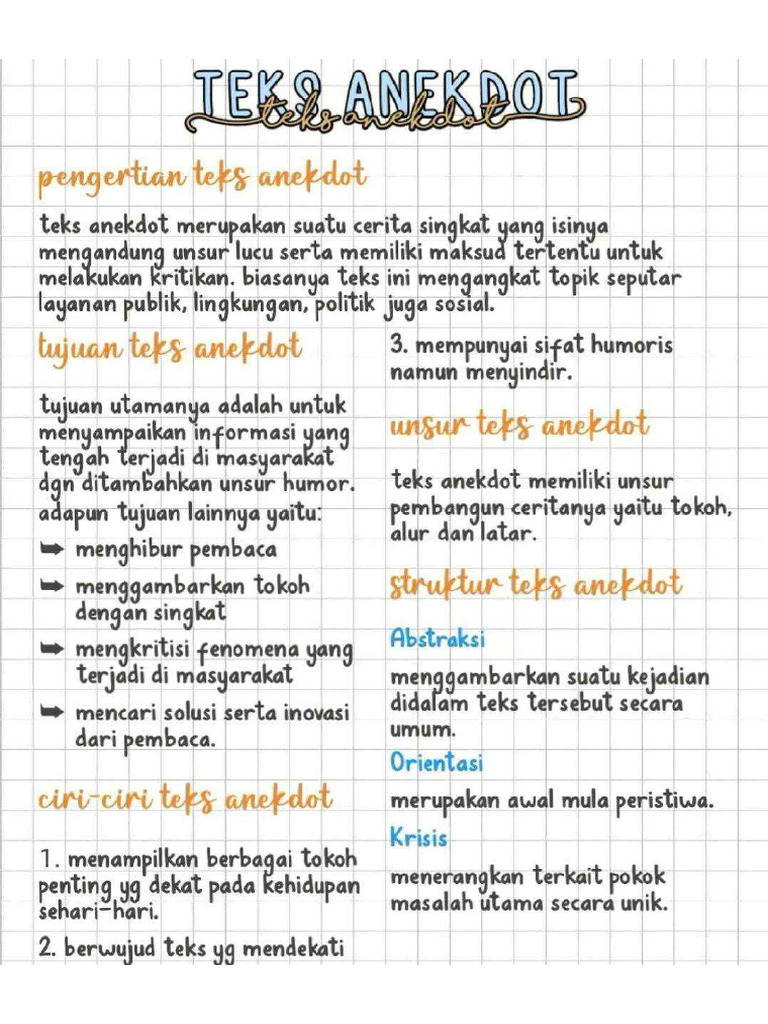 TEKS ANEKDOT
teks anekdot
pengertian teks anekdot
teks anekdot merupakan suatu cerita singkat yang isinya
mengandung unsur lucu serta memiliki maksud tertentu untuk
melakukan kritikan. biasanya teks ini mengangkat topik seputar
layanan publik, lingkungan, politik juga sosial.
tujuan teks anekdot
tujuan utamanya adalah untuk
menyampaikan informasi yang
tengah terjadi di masyarakat
dgn ditambahkan unsur humor.
adapun tujuan lainnya yaitu:
➥ menghibur pembaca
➥ menggambarkan tokoh
dengan singkat
➥ mengkritisi fenomena yang
terjadi di masyarakat
➥ mencari solusi serta inovasi
dari pembaca.
ciri-ciri teks anekdot
1. menampilkan berbagai tokoh
penting yg dekat pada kehidupan
sehari-hari.
2. berwujud teks yg mendekati
3. mempunyai sifat humoris
namun menyindir.
unsur teks anekdot
teks anekdot memiliki unsur
pembangun ceritanya yaitu tokoh,
alur dan latar.
struktur teks anekdot
Abstraksi
menggambarkan suatu kejadian
didalam teks tersebut secara
umum.
Orientasi
merupakan awal mula peristiwa.
Krisis
menerangkan terkait pokok
masalah utama secara unik.